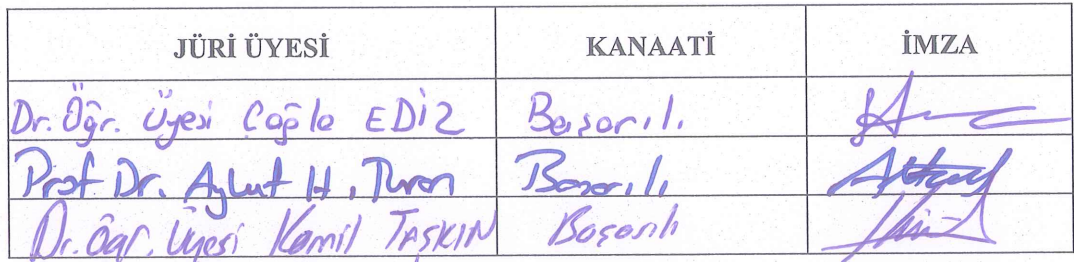 JÜRİ ÜYESİ KANAATİ İMZA
Dr. Öğr. Üyesi Çağla EDİZ Başarılı
Prof. Dr. Aykut H. Turan Başarılı
Dr. Öğr. Üyesi Kamil TAŞKIN Başarılı